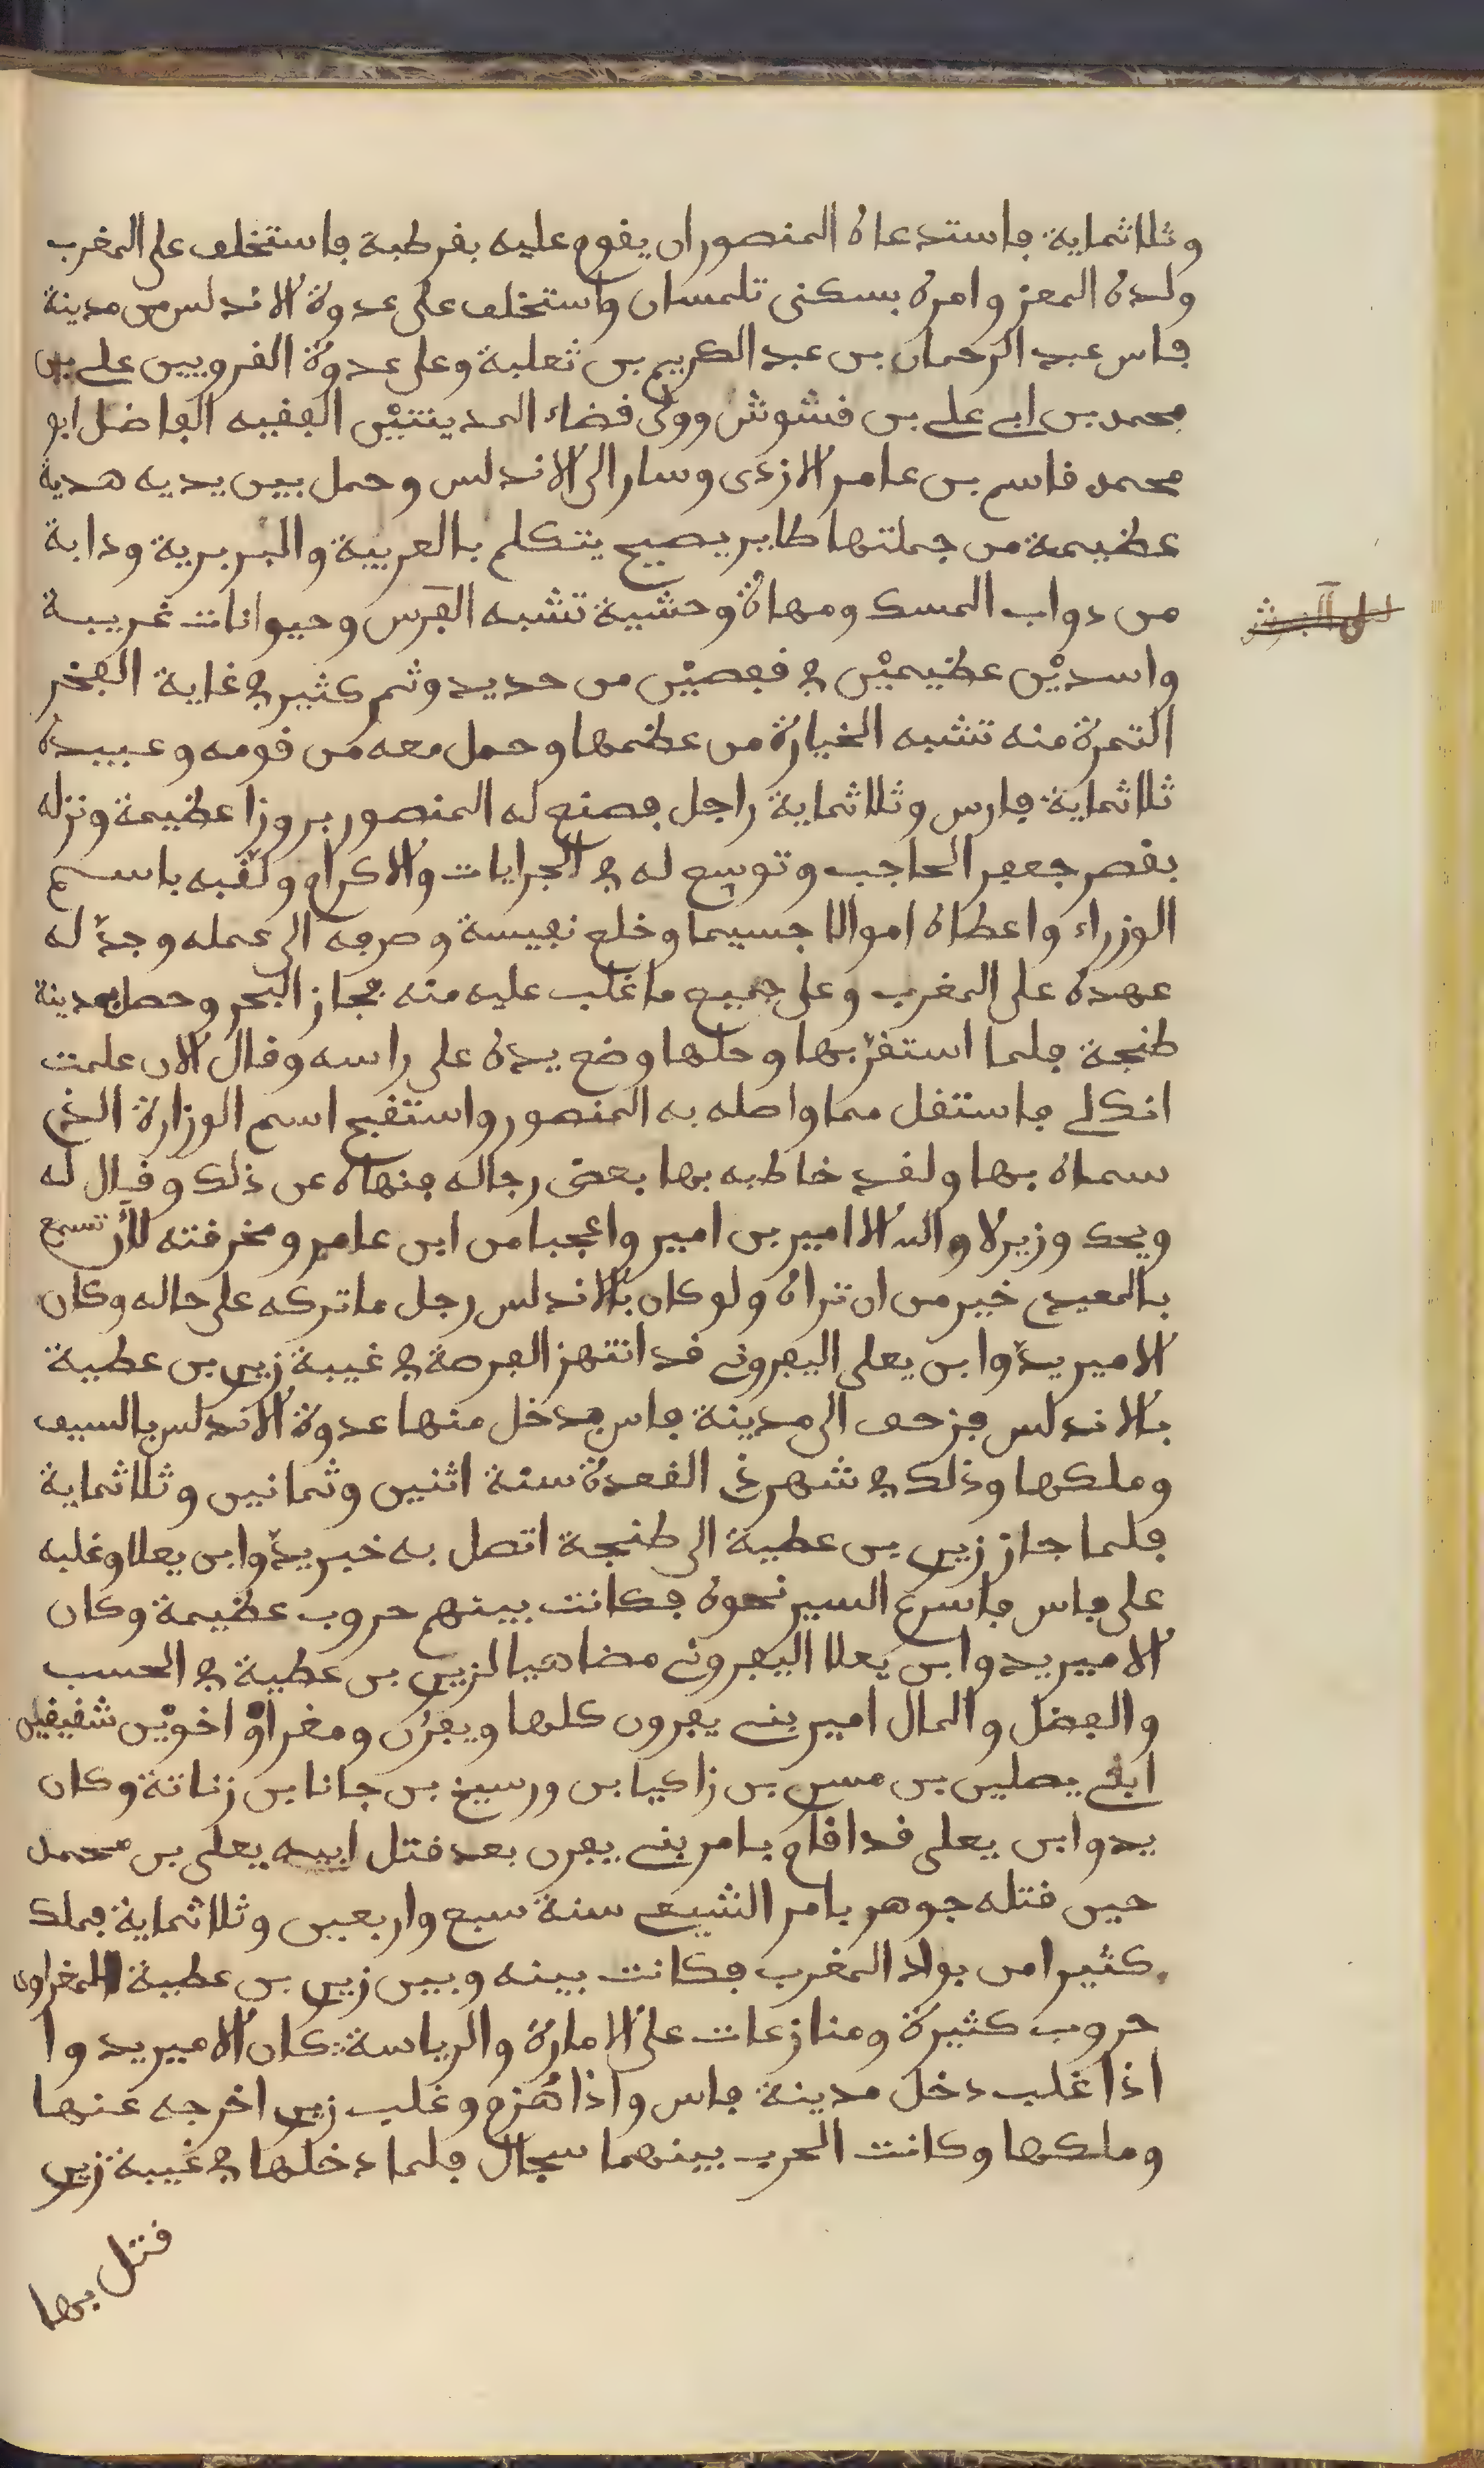 وثلاثماية فاستدعاه المنصور ان يقوم عليه بقرطبة فاستخلف على المغرب
ولده المعز وامره بسكنى تلمسان واستخلف على عدوة الاندلس من مدينة
فاس عبد الرحمان بن عبد الكريم بن ثعلبة وعلى عدوة القرويين علي بن
محمد بن ابي علي بن قشوش وولى قضاء المدينتين الفقيه الفاضل ابو
محمد قاسم بن عامر الازدي وسار الى الاندلس وحمل بين يديه هدية
عظيمة من جملتها طاير يصيح يتكلم بالعربية والبربرية ودابة
من دواب المسك ومهاة وحشية تشبه الفرس وحيوانات غريبة
واسدين عظيمين في قفصين من حديد وثمر كثير في غاية الفخر
التمرة منه تشبه الخيارة من عظمها وحمل معه من قومه وعبيده
ثلاثماية فارس وثلاثماية راجل فصنع له المنصور بروزا عظيمة ونزله
بقصر جعفر الحاجب وتوسع له في الجرايات والاكرام ولقبه باسم
الوزراء واعطاه اموالا جسيما وخلع نفيسة وصرفه الى عمله وجدّ له
عهده على المغرب وعلى جميع ما غلب عليه منه فجاز البحر وحصل بمدينة
طنجة فلما استقرّ بها وحلها وضع يده على راسه وقال الان علمت
انك لي فاستقل مما واصله به المنصور واستقبح اسم الوزارة الذي
سماه بها ولقد خاطبه بها بعض رجاله فنهاه عن ذلك وقال له
ويحك وزير لا والله الا امير بن امير واعجبا من ابن عامر ومخرقته لأن تسمع
بالمعيدي خير من ان تراه ولو كان بالاندلس رجل ما تركه على حاله وكان
الامير يدّوا بن يعلى اليفروني قد انتهز الفرصة في غيبة زيري بن عطية
بالاندلس فزحف الى مدينة فاس فدخل منها عدوة الاندلس بالسيف
وملكها وذلك في شهر ذي القعدة سنة اثنين وثمانين وثلاثماية
فلما جاز زيري بن عطية الى طنجة اتصل به خبر يدّوا بن يعلا وغلبه
على فاس فاسرع السير نحوه فكانت بينهم حروب عظيمة وكان
الامير يدوا بن يعلا اليفروني مضاهيا لزيري بن عطية في الحسب
والفضل والمال امير بني يفرون كلها ويفرن ومغراو اخوين شقيقين
ابني يصليس بن مسرى بن زاكيا بن ورسيخ بن جانا بن زناتة وكان
يدوا بن يعلى قد اقام بامر بني يفرن بعد قتل ابيه يعلى بن محمد
حين قتله جوهر بامر الشيعي سنة سبع واربعين وثلاثماية فملك
كثيرا من بواد المغرب فكانت بينه وبين زيري بن عطية المغراوي
حروب كثيرة ومنازعات على الامارة والرياسة كان الامير يدوا
اذا غلب دخل مدينة فاس واذا هُزم وغلب زيري اخرجه عنها
وملكها وكانت الحرب بينهما سجال فلما دخلها في غيبة زيري
قتل بها